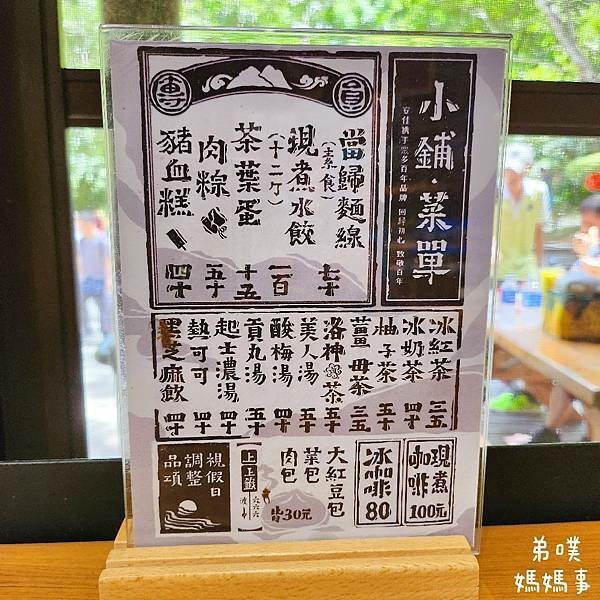 小鋪.菜單
眾多百年品牌 回歸初心 致敬百年
員
專
當歸麵線
(素食)
七十
現煮水餃
(十二ケ)
一百
茶葉蛋
十五
肉粽
五十
豬血糕
四十
冰紅茶 三五
冰奶茶 四十
柚子茶 五十
薑母茶 三五
洛神茶 五十
美人湯 五十
酸梅湯 四十
貢丸湯 五十
起士濃湯 四十
熱可可 四十
黑芝麻飲 四十
現煮
咖啡
100元
冰咖啡
80
大紅豆包
菜包
肉包
皆30元
上上籤
六六六
視假日
調整
品項
弟噗
媽媽事